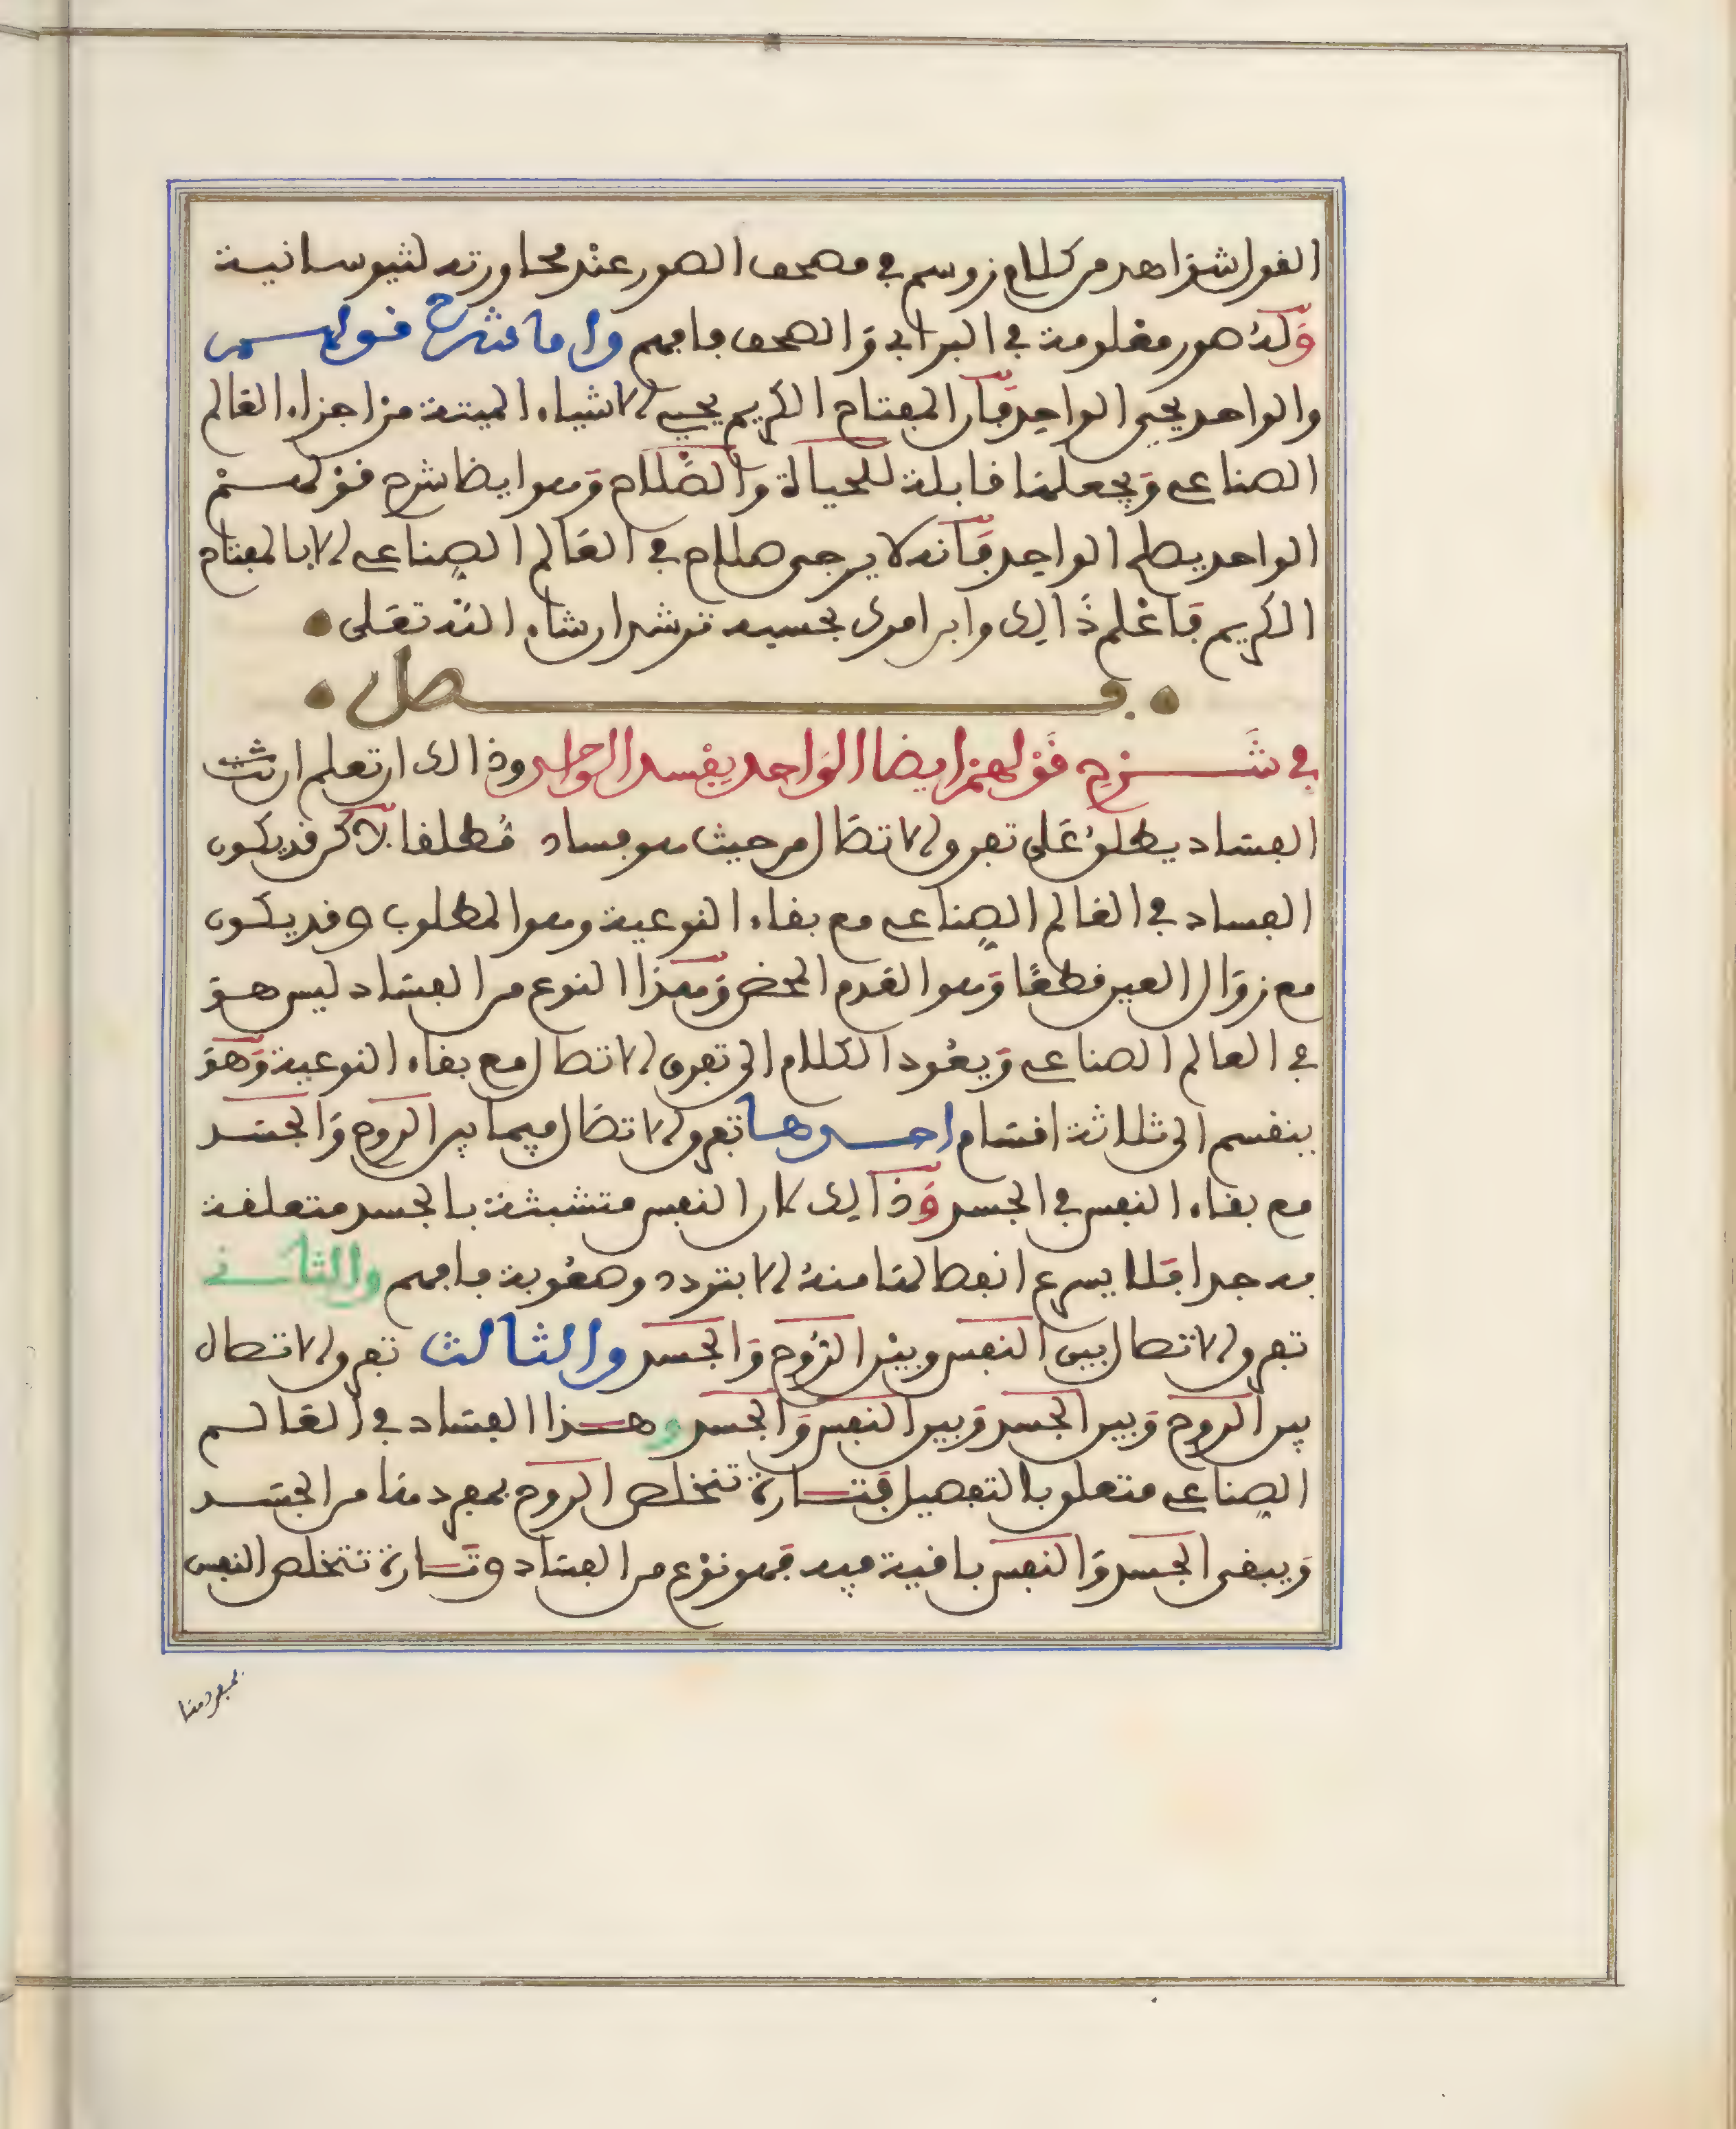 القول شواهد من كلام زوسم في مصحف الصور عند محاورته لثيوسانية
وله صور معلومة في البرابي والصحف فافهم واما شرح قولهم
والواحد يحيي الواحد فان المفتاح الكريم يحيي الاشياء الميتة من اجزاء العالم
الصناعي ويجعلها قابلة للحياة والصلاح وهو ايضا شرح قولهم
الواحد يصلح الواحد فانه لا يرجى صلاح في العالم الصناعي الا بالمفتاح
الكريم فاعلم ذالك وابن امرك بحسبه ترشد ان شاء الله تعلى
فصل
في شرح قولهم ايضا الواحد يفسد الواحد وذالك ان تعلم ان
الفساد يطلق على تفرق الاتصال من حيث هو فساد مطلقا لاكن قد يكون
الفساد في العالم الصناعي مع بقاء النوعية وهو المطلوب وقد يكون
مع زوال العين قطعا وهو العدم المحض وهذا النوع من الفساد ليس هو
في العالم الصناعي ويعود الكلام الى تفرق الاتصال مع بقاء النوعية وهو
ينقسم الى ثلاثة اقسام احدها تفرق الاتصال فيما بين الروح والجسد
مع بقاء النفس في الجسد وذالك لان النفس متشبثة بالجسد متعلقة
به جدا فلا يسرع انفصالها منه الا بتردد وصعوبة فافهم والثاني
تفرق الاتصال بين النفس وبين الروح والجسد والثالث تفرق الاتصال
بين الروح وبين الجسد وبين النفس والجسد وهذا الفساد في العالم
الصناعي متعلق بالتفصيل فتارة تتخلص الروح بمفردها من الجسد
ويبقى الجسد والنفس باقية فيه فهو نوع من الفساد وتارة تتخلص النفس
بمفردها